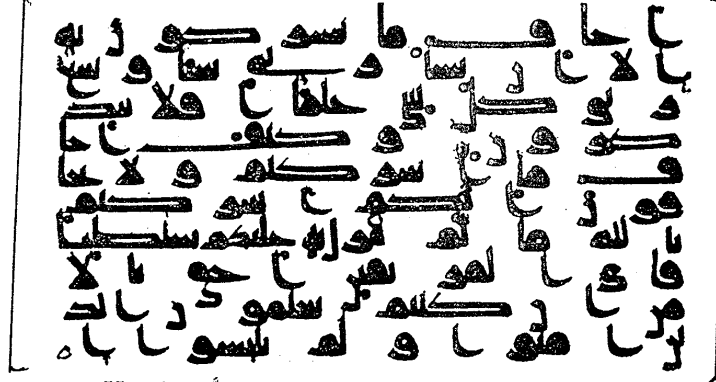 اخاف ما تشركون به
الا ان يشا ربي شيا وسع
ربي كل شي علما افلا تتذ
كرون وكيف اخا
ف ما اشركتم ولا تخا
فون انكم اشركتم
بالله ما لم ينزل به عليكم سلطنا
فاي الفريقين احق بالا
من ان كنتم تعلمون الذ
ين امنوا ولم يلبسوا ايـ